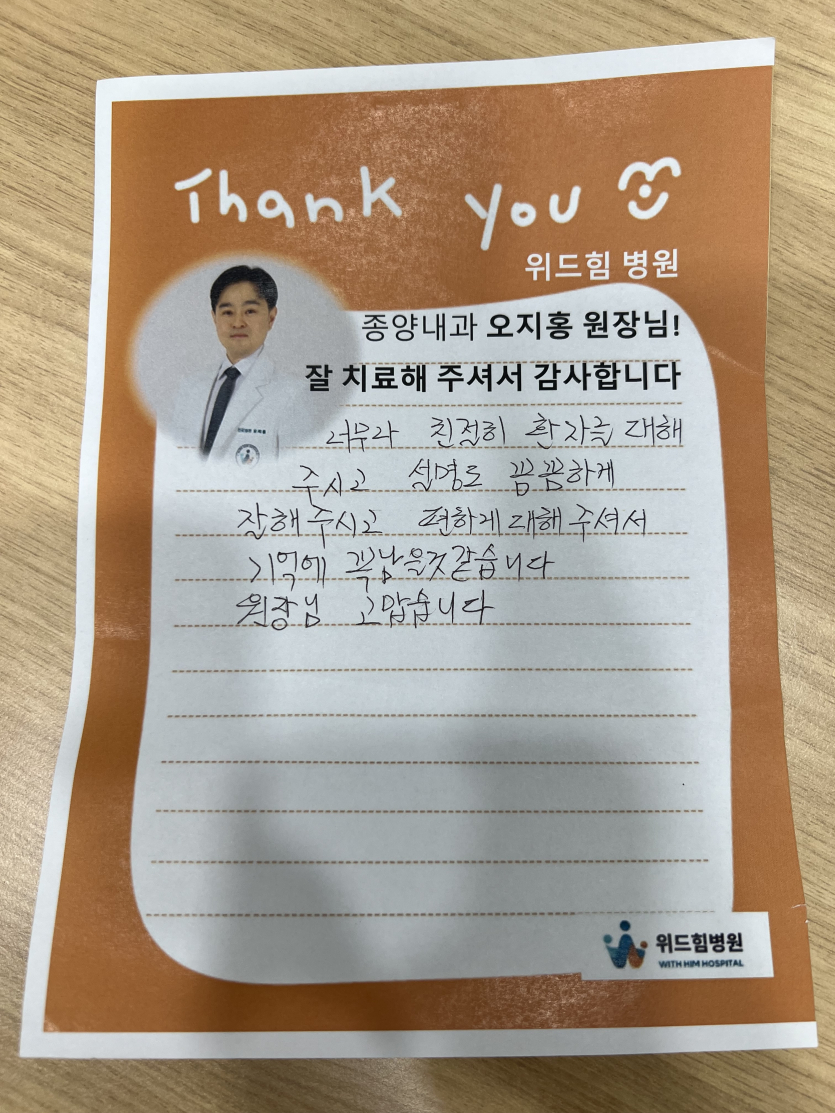 Thank you
위드힘 병원
종양내과 오지홍 원장님!
잘 치료해 주셔서 감사합니다
너무나 친절히 환자를 대해
주시고 설명도 꼼꼼하게
잘해 주시고 편하게 대해 주셔서
기억에 꼭 남을것 같습니다
원장님 고맙습니다
위드힘병원
WITH HIM HOSPITAL